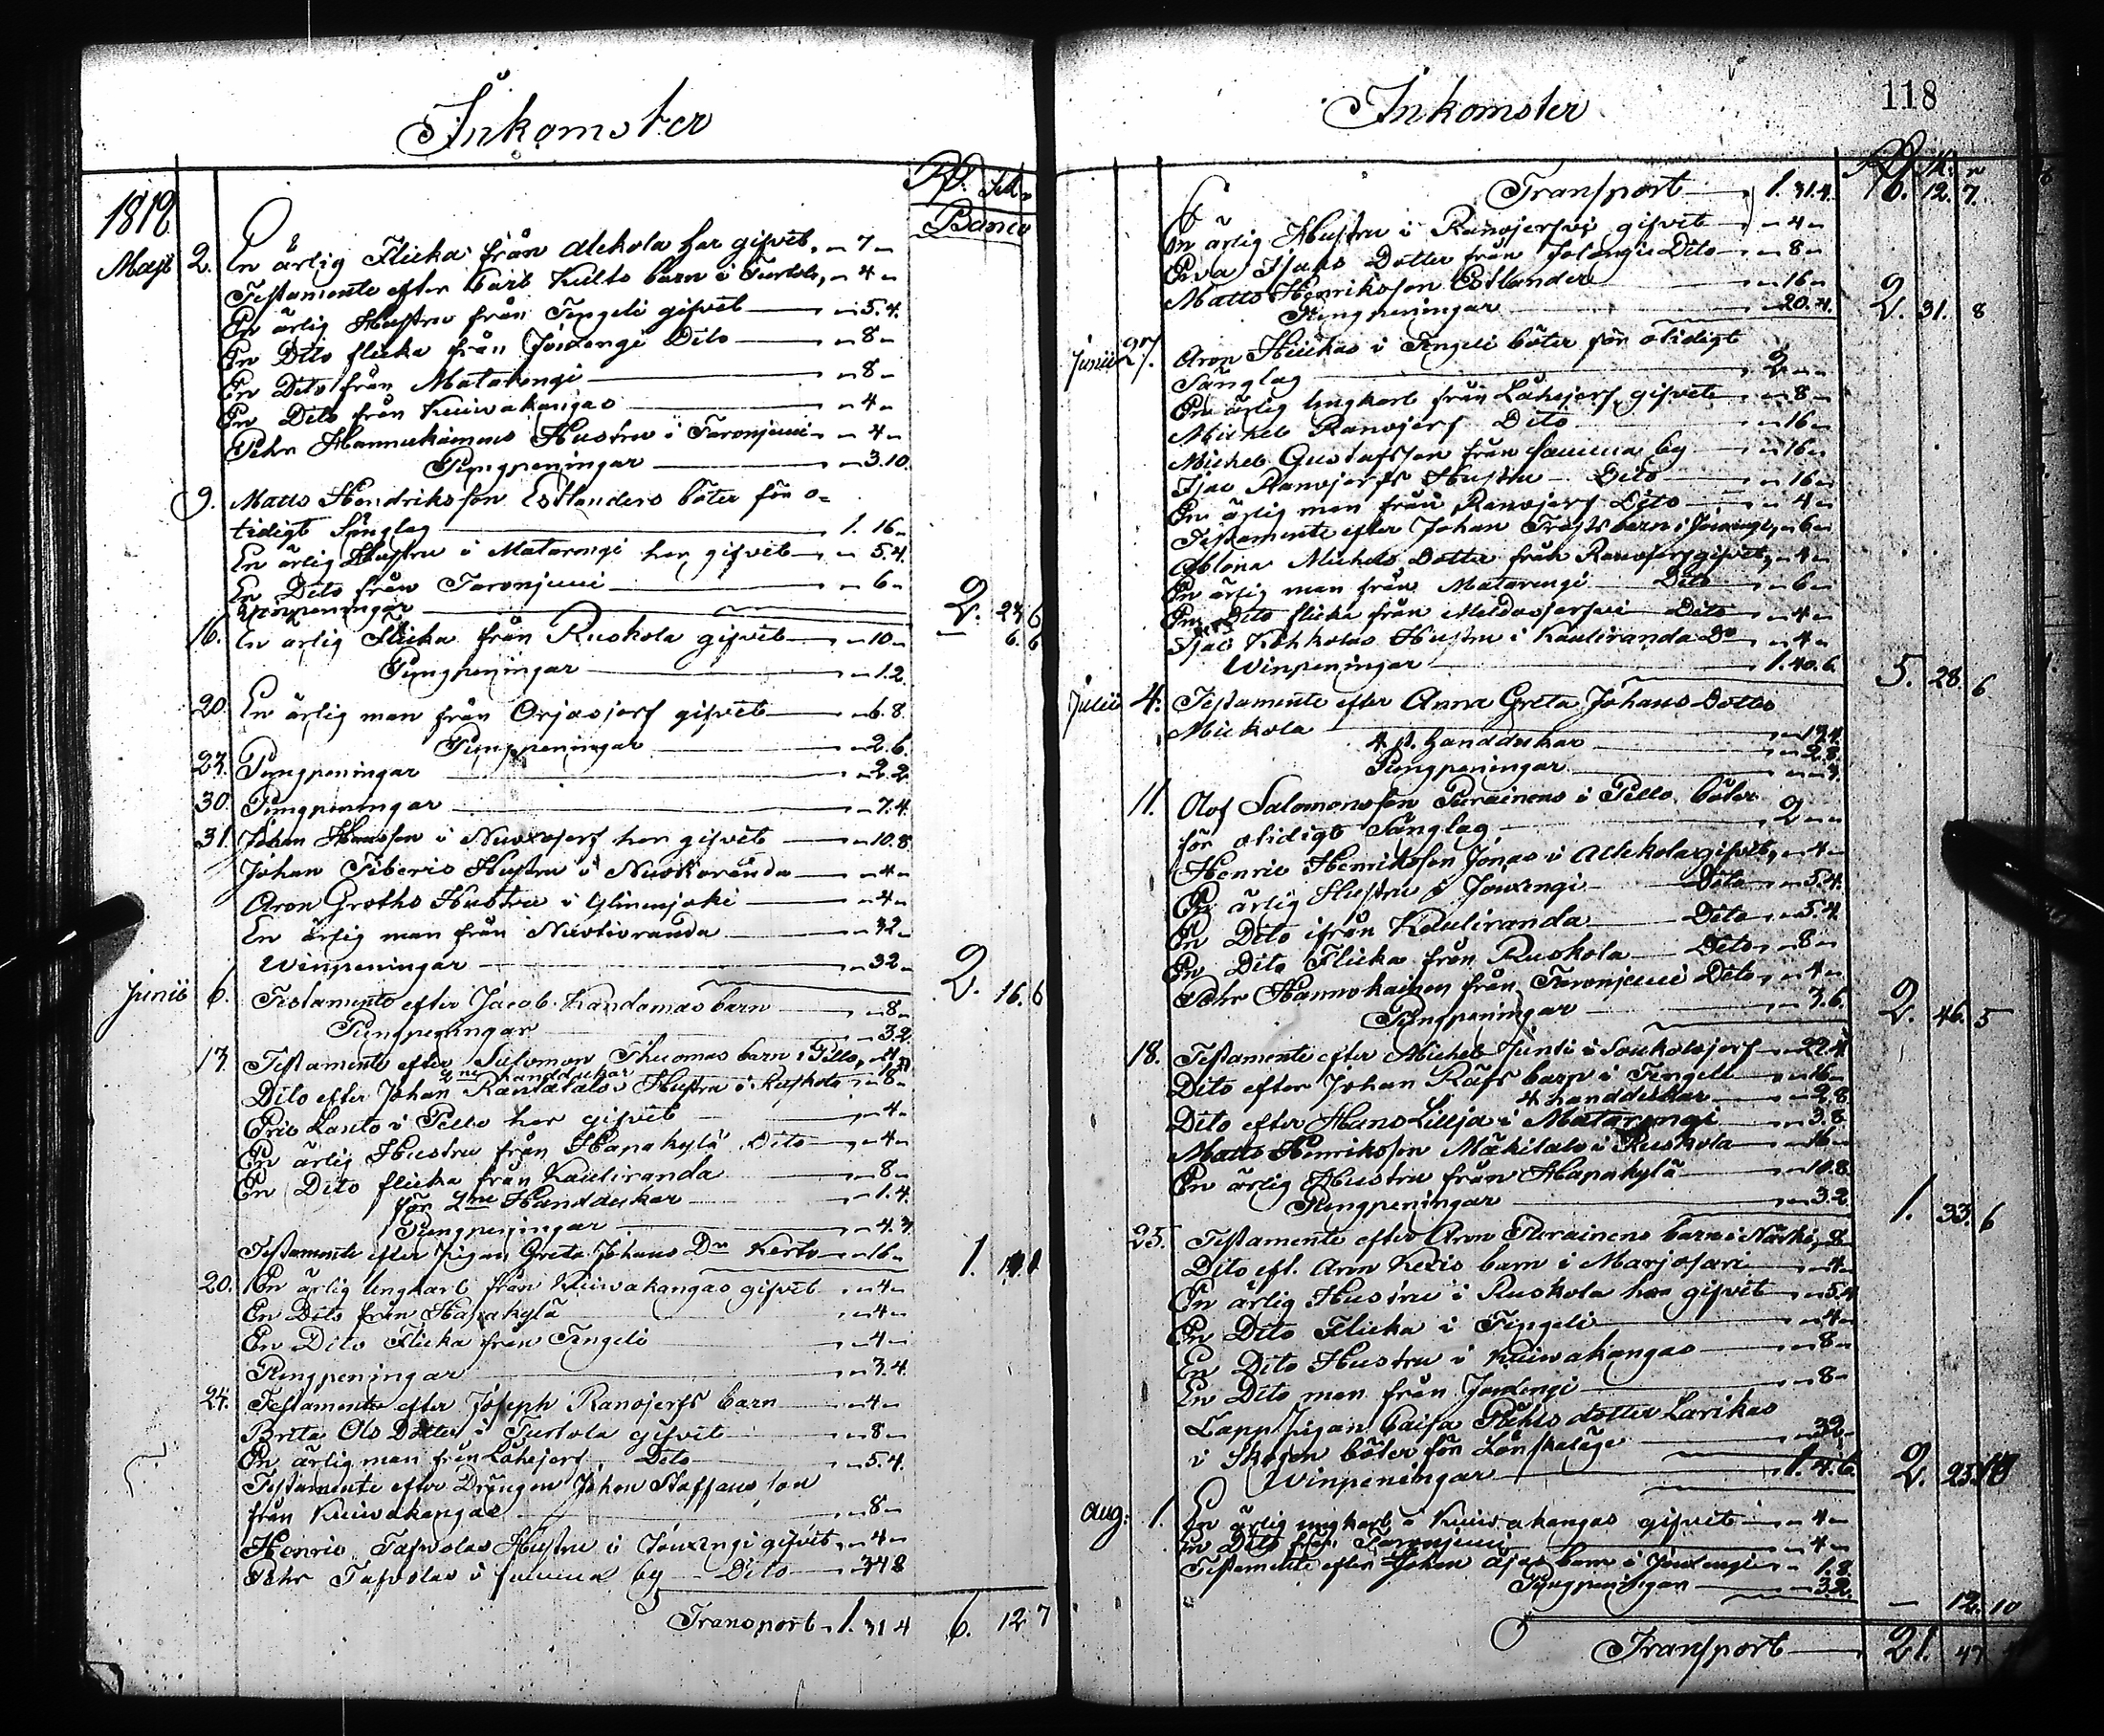 Inkomster
Rd. Sk.
Banco
1812
Maji 2. En ärlig Flicka från Alkola har gifvit, - 7 -
Testamente efter Carl Kults barn i Turtola, - 4 -
En ärlig Hustru från Tengeli gifvit - 5.4.
En Dito flicka från Jouxengi Dito - 8 -
En Dito från Matarengi - 8 -
En Dito från Kuiwakangas - 4 -
Pehr Hannukainens Hustru i Toronjuuri - 4 -
Pungpeningar - 3.10
9. Matts Hendriksson Estlanders böter för o=
tidigt Sänglag 1. 16 -
En ärlig Hustru i Matarengi har gifvit - 5.4.
En Dito från Toronjuuri - 6 -
Pungpeningar 2. 24 6
16. En ärlig Flicka från Ruskola gifvit - 10 - 6. 6
Pungpeningar - 1.2.
20. En ärlig man från Orjasjerf gifvit - 6.8.
Pungpeningar - 2.6.
23. Pungpeningar - 2.2.
30. Pungpeningar - 7.4.
31. Johan Hansson i Nuoxojerf har gifvit - 10.8
Johan Fiberis Hustru i Niskaranda - 4 -
Aron Groths Hustru i Ylinenjoki - 4 -
En ärlig man från Nivtivaranda - 32 -
Winpeningar - 32 - 2. 16. 6
Junii 6. Testamente efter Jacob Kandomas barn - 8 -
Pungpeningar - 3.2
13. Testamente efter Salomon Thuomas barn i Pello,
2ne handdukar
Dito efter Johan Rantatalos Hustru i Ruskola - 8 -
Eric Lasto i Pello har gifvit - 4 -
En ärlig Hustru från Hapakylä Dito - 4 -
En Dito flicka från Kauliranda - 8 -
för 2ne Handdukar - 1.4.
Pungpeningar - 4.3.
Testamente efter Pigan Greta Johans Dr Kerto - 16 - 1.
20. En ärlig Ungkarl från Kuiwakangas gifvit - 4 -
En Dito från Hapakylä - 4 -
En Dito Flicka från Tengeli - 4 -
Pungpeningar - 3.4.
24. Testamente efter Joseph Ranojerfs barn - 4 -
Brita Ols Dotter i Turtola gifvit - 8 -
En ärlig man från Lähejerf, Dito - 5.4.
Testamente efter Drängen Johan Staffans son
från Kuiwakangas - 8 -
Henric Tapvolas Hustru i Jouxengi gifvit - 4 -
Pehr Tapvolas i samma by - Dito - 34 8
Transport - 1. 31 4 6. 12 7
Inkomster 118
Transport 1. 31.4. 6. 12. 7.
En ärlig Hustru i Ranojerfvi gifvit - 4 -
Eva Isaks Dotter från Jolangi Dito - 8 -
Matts Henriksson Estlander - 16 -
Pungpeningar - 20.4. 2. 31. 8
Junii 27. Aron Hiukas i Tengeli böter för otidigt
Sänglag 2 - -
En ärlig Ungkarl från Lähejerf gifvit - 8 -
Michel Ranojerf Dito - 16 -
Michel Gustafsson från samma by - 16 -
Isac Ranojerfs Hustru - Dito - 16 -
En ärlig man från Ranojerf Dito - 4 -
Testamente efter Johan Frästs barn i Jouxengi, - 6 -
Ablona Michels Dotter från Ranojerf gifvit, - 4 -
En ärlig man från Matarengi Dito - 6 -
En Dito flicka från Meldosjerfvi Dito - 4 -
Isac Kohkolas Hustru i Kauliranda Do - 4 -
Winpeningar 1. 40. 6. 5. 28. 6
Julii 4. Testamente efter Anna Greta Johans Dotter
Mickola - 12.4
4 st. handdukar - 2.8.
Pungpeningar
11. Olof Salomonsson Purainens i Pello böter
för otidigt Sänglag 2 - -
Henric Henriksson Jonas i Alkola gifvit, - 4 -
En ärlig Hustru i Jouxengi - Dito - 5.4.
En Dito ifrån Kauliranda - Dito - 5.4.
En Dito Flicka från Ruskola - Dito - 8 -
Pehr Hannokainen från Toronjuuri Dito, - 4 -
Pungpeningar - 3.6. 2. 46. 5
18. Testamente efter Michel Junti i Soukolojerf - 22.4
Dito efter Johan Räfs barn i Tengeli - 16 -
4 handdukar - 2.8
Dito efter Hans Lillja i Matarengi - 3.8
Matts Henriksson Mäkitalo i Ruskola - 16 -
En ärlig Hustru från Hapakylä - 10.8.
Pungpeningar - 3.2. 1. 33. 6
25. Testamente efter Aron Purainens barn i Närki, - 8 -
Dito eft. Aron Kexis barn i Marjosari - 4 -
En ärlig Hustru i Ruskola har gifvit - 5.4
En Dito Flicka i Tengeli - 4 -
En Dito Hustru i Kuiwakangas - 8 -
En Dito man från Jouxengi - 8 -
Lapp Pigan Caisa Påhls dotter Larikas
i Skogen böter för Lönskaläge - 32 -
Winpeningar 1. 4. 6. 2.
Aug: 1. En ärlig ungkarl i Kuiwakangas gifvit - 4 -
En Dito från Toronjuuri - 4 -
Testamente efter Johan Äjas barn i Jouxengi - 1.8.
Pungpeningar - 3.2. - 12. 10
Transport 21. 47